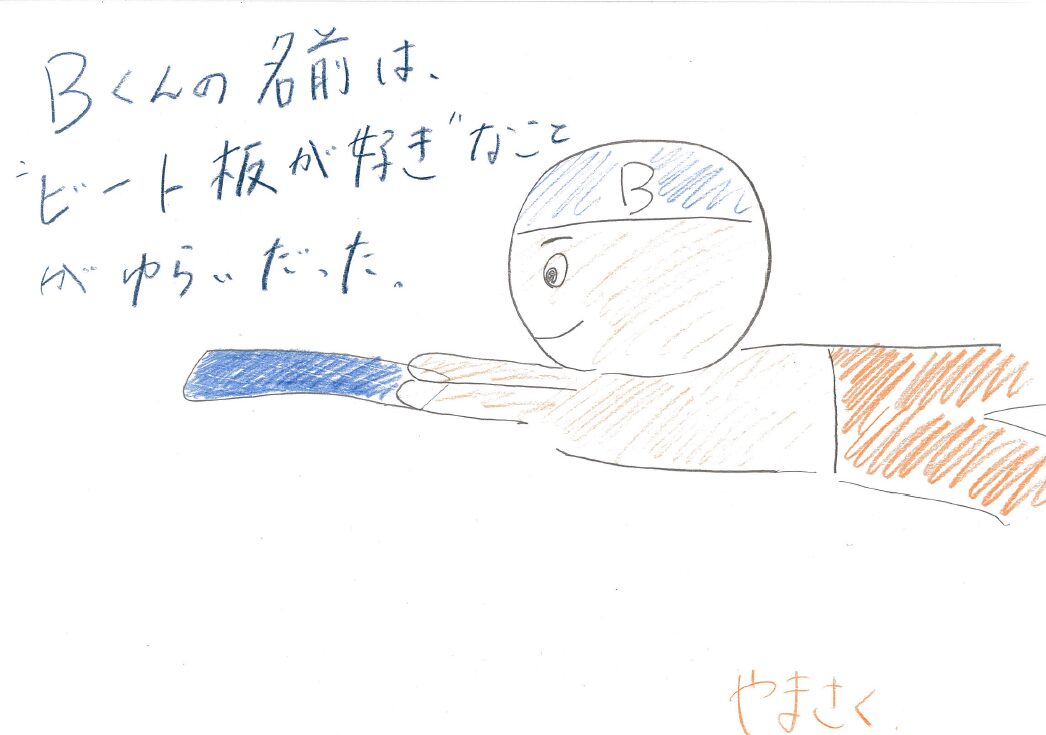 Bくんの名前は、
"ビート板が好き"なこと
がゆらいだった。
B
やまさく.